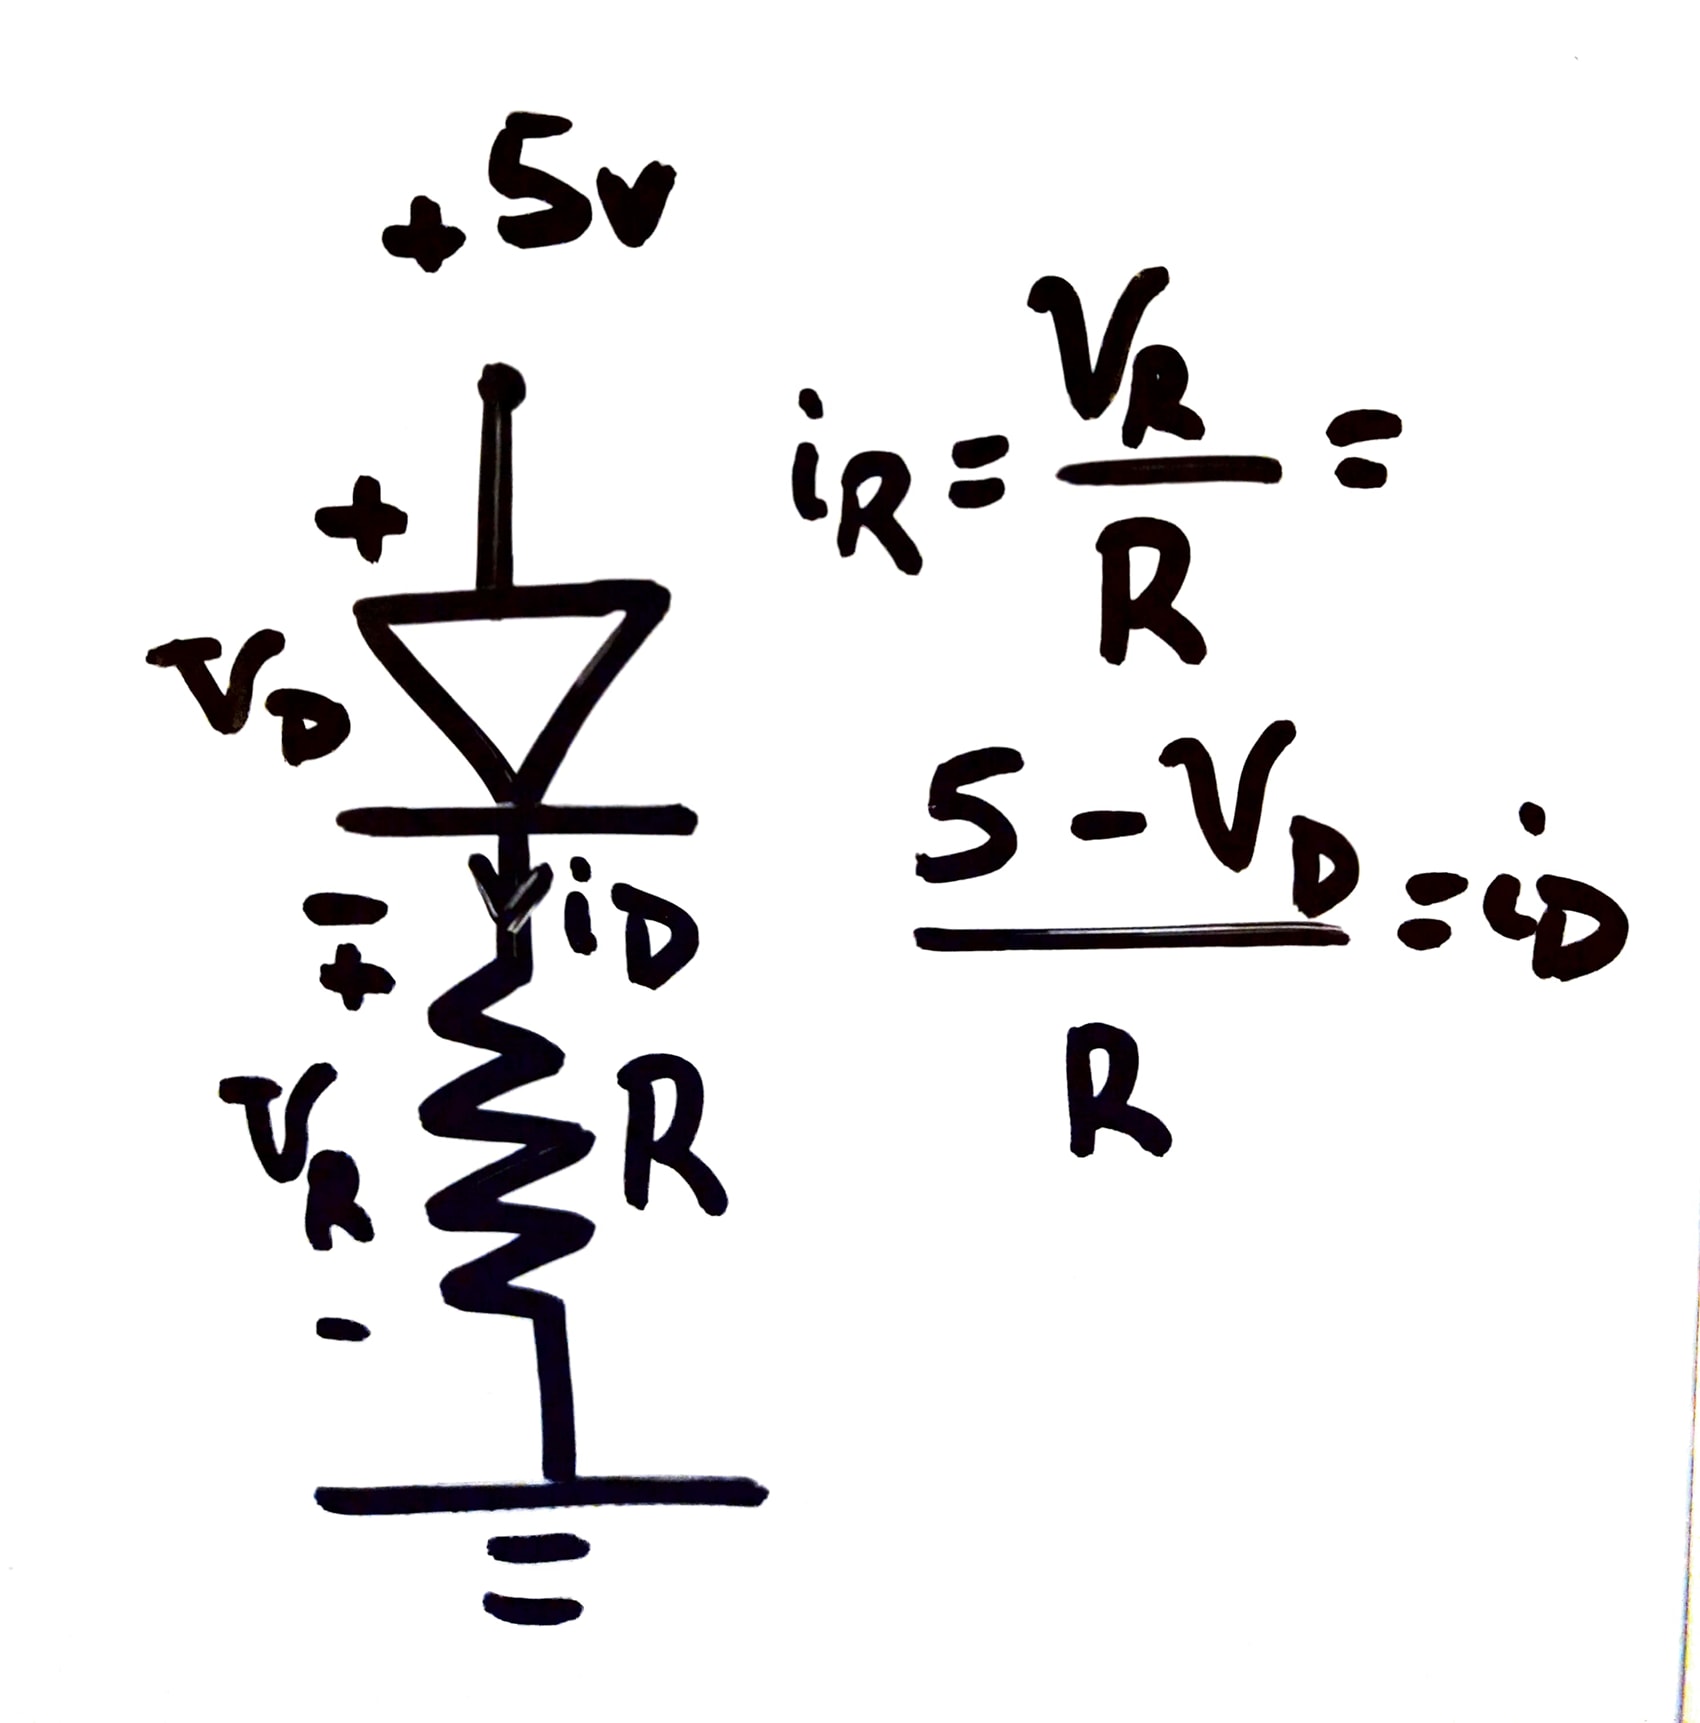 +5v
+
V_D
-
i_D
+
V_R
R
-
i_R = V_R / R =
5 - V_D / R = i_D